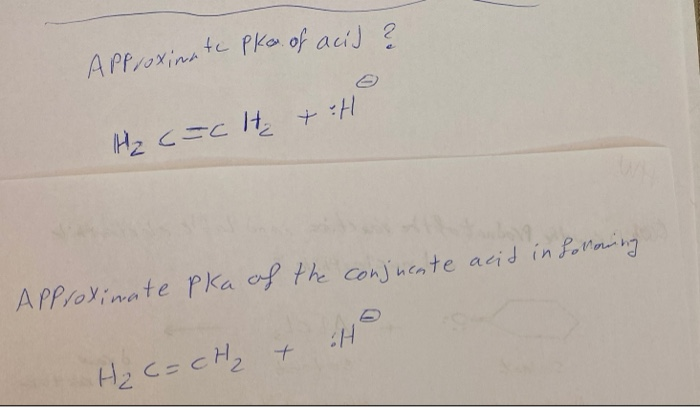 Approximate pka of acid ?
H₂C=CH₂ + :H⊖
Approximate pka of the conjucate acid in following
H₂C=CH₂ + :H⊖